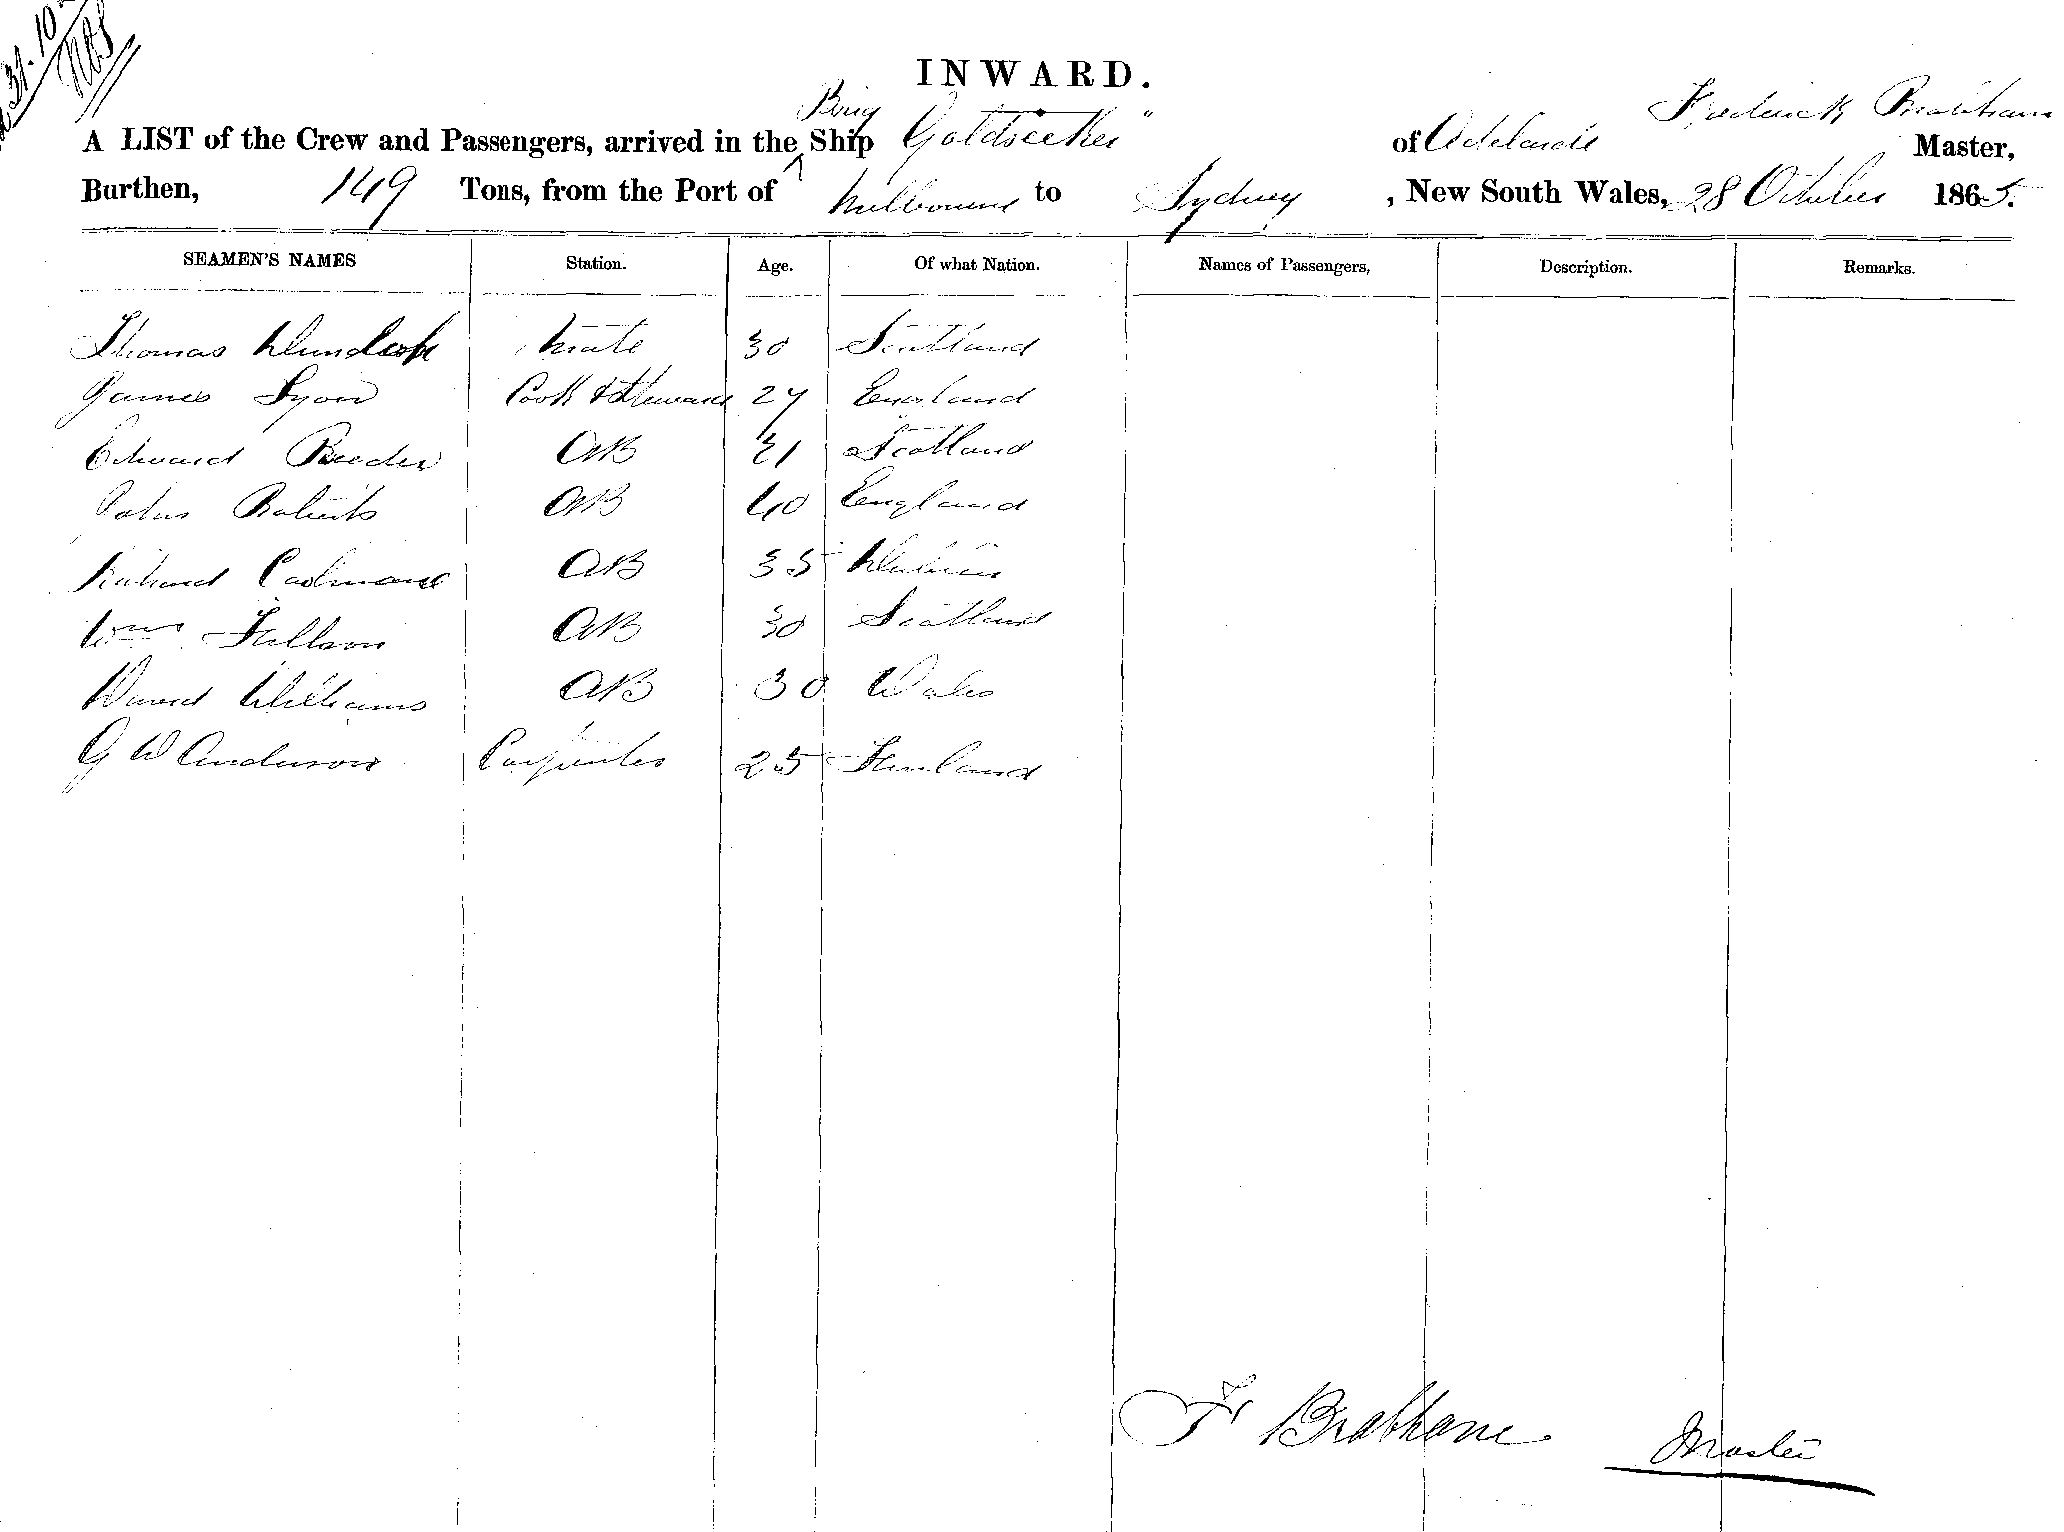 31.10
INWARD.
Frederick Brabham
Brig
A LIST of the Crew and Passengers, arrived in the ^ Ship Goldseeker" of Adelaide Master,
Burthen, 149 Tons, from the Port of Melbourne to Sydney , New South Wales, 28 October 1865.
SEAMEN'S NAMES Station. Age. Of what Nation. Names of Passengers, Description. Remarks.
Thomas Mate 30 Scotland
James Lyon Cook & Steward 27 England
Edward Reeder AB 31 Scotland
Roberts AB 40 England
Richard AB 35 Dublin
Wm AB 30 Scotland
David Williams AB 30 Wales
G W Anderson Carpenter 25 Finland
F Brabham Master